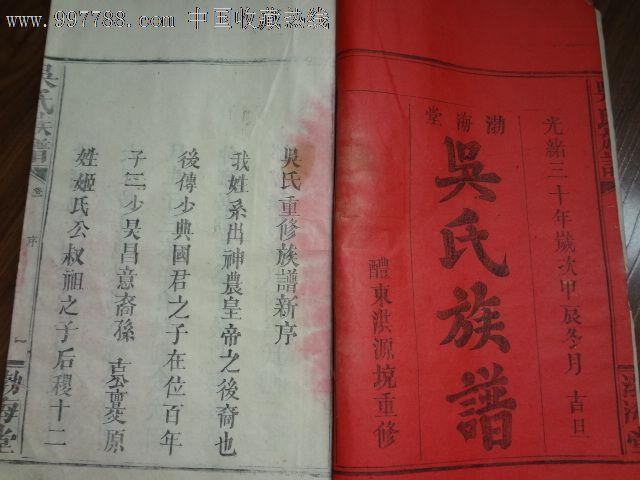 www.997788.com 中国收藏热线
光緒三十年歲次甲辰冬月吉旦
渤海堂
吳氏族譜
醴東淇源境重修
吳氏重修族譜新序
我姓系出神農皇帝之後裔也
後傳少典國君之子在位百年
子二少昊昌意裔孫古公亶父原
姓姬氏公叔祖之子后稷十二
吳氏族譜
卷一
序
一
渤海堂
吳氏族譜
渤海堂